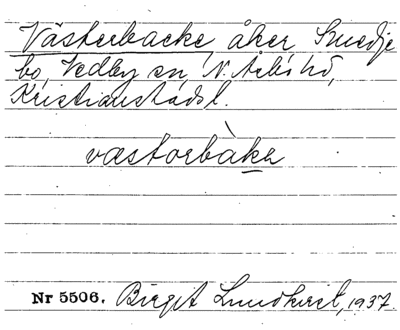 Västerbacke åker Smedje
bo, Vedby sn, N. Åsbo hd,
Kristianstads l.
væstorbàka
Nr 5506. Birgit Lundkvist, 1937.